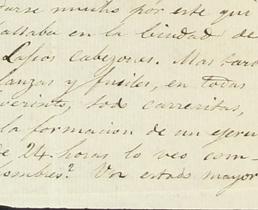 arse mucho por este que
allaba en la Ciudad de
Lapios cabezones. Mas bar
lanzas y fusiles, en todas
todo carreritas,
la formacion de un ejerc
de 24 horas lo veo com-
ombres? Un estado mayor